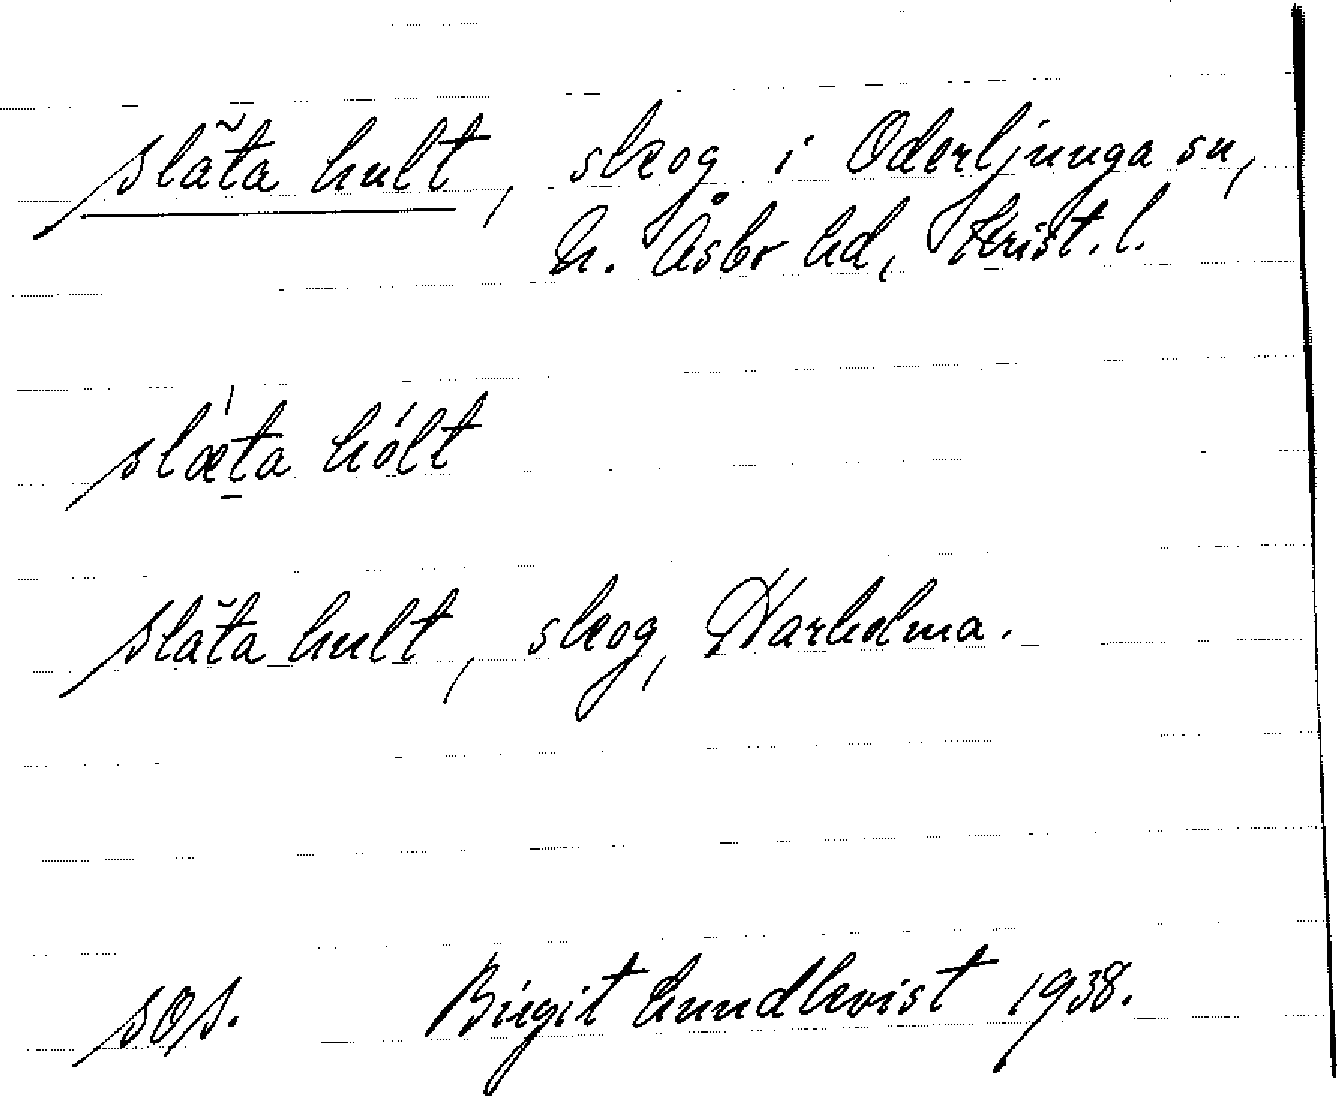 släta hult, skog i Oderljunga sn,
N. Åsbo hd, Krist. l.
slæta hólt
släta hult, skog, Harholma.
sos. Birgit Lundkvist 1938.